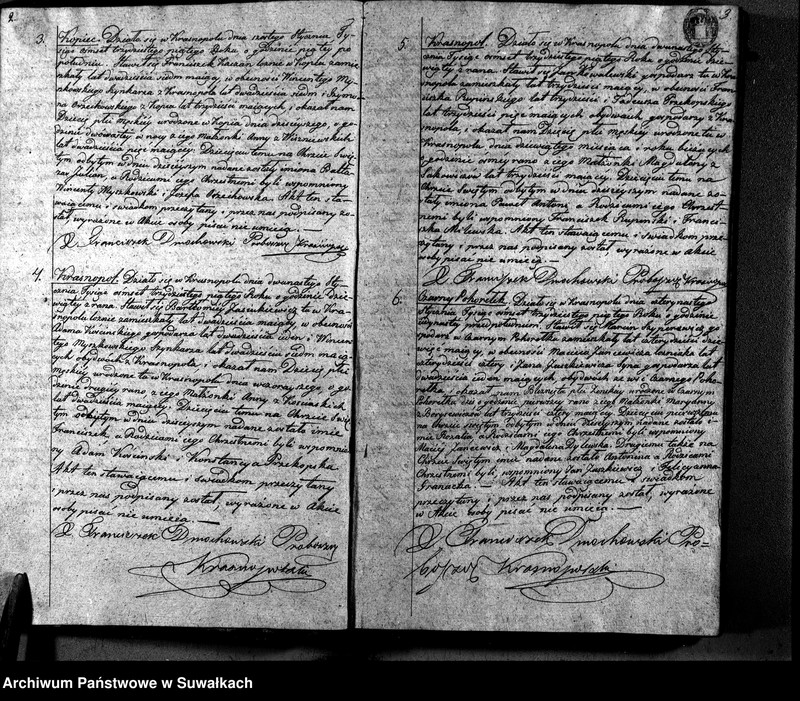 2
3. Kopiec. Działo się w Krasnopolu dnia szóstego Stycznia Ty-
siąc ośmset trzydziestego piątego Roku o godzinie piątej po
południu. Stawił się Franciszek w Kopcu zamie-
szkały lat dwadzieścia siedm mający, w obecności Wincentego My-
szkowskiego Szynkarza z Krasnopola lat dwadzieścia siedm i Szymo-
na z Kopca lat trzydzieści mających, i okazał nam
Dziecię płci męskiej urodzone w Kopcu dnia dzisiejszego, o go-
dzinie w nocy z jego Małżonki Anny z
lat dwadzieścia pięć mającej. Dziecięciu temu na Chrzcie Świę-
tym odbytym w dniu dzisiejszym nadane zostały imiona Balta-
zar Julian, a Rodzicami jego Chrzestnemi byli wspomniony
Wincenty Myszkowski i Józefa Orzechowska. Akt ten sta-
wającemu i świadkom przeczytany, przez nas podpisany zo-
stał, wyrażone w Akcie osoby pisać nie umieją. —
X Franciszek Dmochowski Proboszcz Krasnopolski
4. Krasnopol. Działo się w Krasnopolu dnia dwunastego Sty-
cznia Tysiąc ośmset trzydziestego piątego Roku o godzinie dzie-
wiątej z rana. Stawił się Bartłomiej Jaszukiewicz tu w Kra-
snopolu zamieszkały lat dwadzieścia mający, w obecności
Adama Kocińskiego gospodarza lat dwadzieścia jeden i Wincen-
tego Myszkowskiego Szynkarza lat dwadzieścia siedm mają-
cych obydwóch z Krasnopola, i okazał nam Dziecię płci
męskiej urodzone tu w Krasnopolu dnia wczorajszego o go-
dzinie drugiej rano z jego Małżonki Anny z
lat dwadzieścia mającej. Dziecięciu temu na Chrzcie Świę-
tym odbytym w dniu dzisiejszym nadane zostało imie
Franciszek, a Rodzicami jego Chrzestnemi byli wspomnio-
ny Adam Kociński i Konstancya Przekopska
Akt ten stawającemu i świadkom przeczytany
i przez nas podpisany został, wyrażone w Akcie
osoby pisać nie umieją. —
X Franciszek Dmochowski Proboszcz
Krasnopolski
3
5. Krasnopol. Działo się w Krasnopolu dnia dwunastego Sty-
cznia Tysiąc ośmset trzydziestego piątego Roku o godzinie dzie-
wiątej z rana. Stawił się gospodarz tu w Kra-
snopolu zamieszkały lat trzydzieści mający, w obecności Fran-
ciszka Rupińskiego lat trzydzieści i Tadeusza Przekopskiego
lat trzydzieści pięć mających obydwóch gospodarzy z Kra-
snopola, i okazał nam Dziecię płci męskiej urodzone tu w
Krasnopolu dnia dziewiątego miesiąca i roku bieżących
o godzinie ósmej rano z jego Małżonki Magdaleny z
lat trzydzieści mającej. Dziecięciu temu na
Chrzcie Świętym odbytym w dniu dzisiejszym nadane zo-
stały imiona Paweł Antoni, a Rodzicami jego Chrzest-
nemi byli wspomniony Franciszek Rupiński i Franci-
szka Milewska. Akt ten stawającemu i świadkom prze-
czytany, i przez nas podpisany został, wyrażone w Akcie
osoby pisać nie umieją. —
X Franciszek Dmochowski Proboszcz Krasnopolski
6. Czarny Pohorelik. Działo się w Krasnopolu dnia czternastego
Stycznia Tysiąc ośmset trzydziestego piątego Roku o godzinie
przed południem. Stawił się Marcin go-
spodarz w Czarnym Pohorelku zamieszkały lat czterdzieści dzie-
więć mający, w obecności Macieja Janczewicza lat
czterdzieści cztery i Jana Jaszkiewicza syna gospodarza lat
dwadzieścia jeden mających obydwóch ze wsi Czarnego Poho-
relka, i okazał nam Bliznięta płci żeńskiej urodzone w Czarnym
Pohorelku dziś o godzinie pierwszej rano z jego Małżonki Maryanny
z lat trzydzieści cztery mającej. Dziecięciu pierwszemu
na Chrzcie świętym odbytym w dniu dzisiejszym nadane zostało i-
mie Rozalia, a Rodzicami jego Chrzestnemi byli wspomniony
Maciej Janczewicz, i Magdalena. Drugiemu także na
Chrzcie Świętym imie nadane zostało Antonina a Rodzicami
Chrzestnemi byli, wspomniony Jan Jaszkiewicz i Felicyanna
. — Akt ten stawającemu i świadkom
przeczytany, i przez nas podpisany został, wyrażone
w Akcie osoby pisać nie umieją. —
X Franciszek Dmochowski Pro=
boszcz Krasnopolski
Archiwum Państwowe w Suwałkach